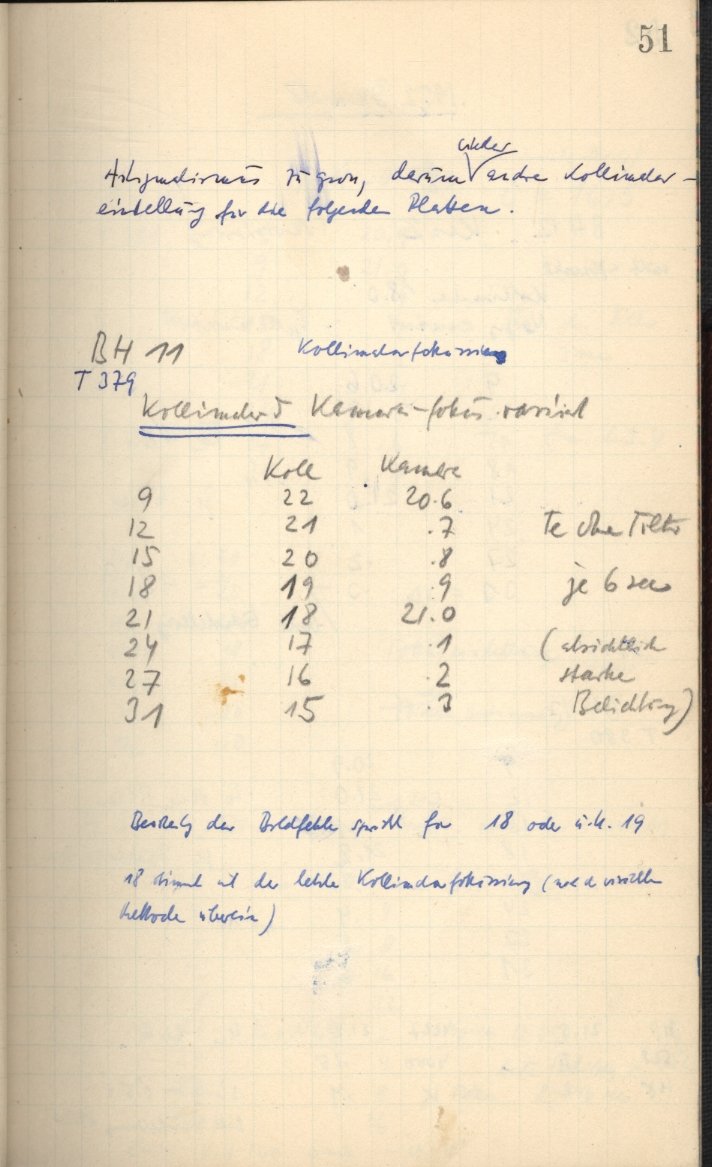 51
wieder
Astigmatismus zu gross, darum andre Kollimator-
einstellung für die folgenden Platten.
BH 11 Kollimatorfokussierung
T 379
Kollimator u Kamera-fokus variiert
Koll Kamera
9 22 20.6
12 21 .7 Te ohne Filter
15 20 .8
18 19 .9 je 6 sec
21 18 21.0
24 17 .1 (absichtlich
27 16 .2 starke
31 15 .3 Belichtung)
der Bildfehler spricht für 18 oder u.U. 19
18 stimmt mit der letzten Kollimatorfokussierung (nach visueller
Methode überein)